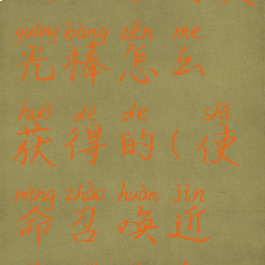 guāng bàng zěn me
光棒怎么
huò dé de shǐ
获得的(使
mìng zhào huàn jìn
命召唤近